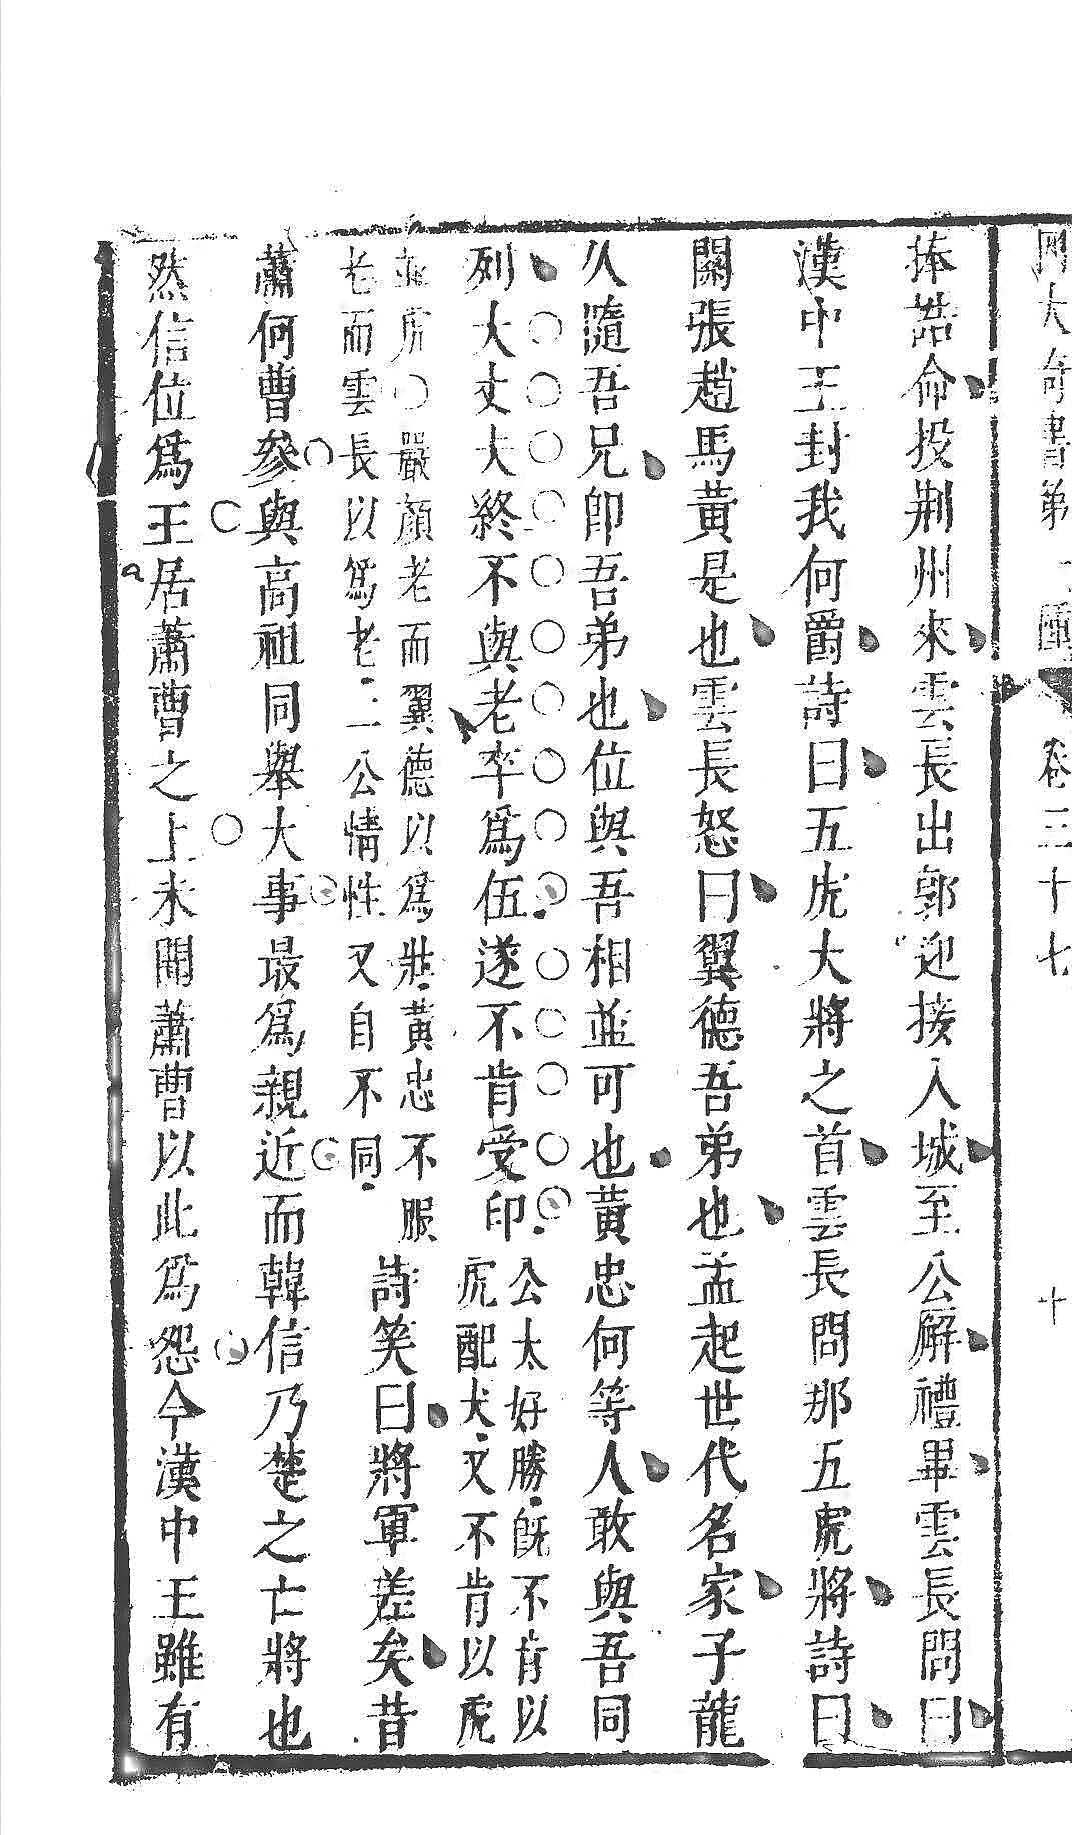 四大奇書第一種 卷三十七 十
捧誥命投荆州來雲長出郭迎接入城至公廨禮畢雲長問曰
漢中王封我何爵詩曰五虎大將之首雲長問那五虎將詩曰
關張趙馬黃是也雲長怒曰翼德吾弟也孟起世代名家子龍
久隨吾兄卽吾弟也位與吾相並可也黃忠何等人敢與吾同
列大丈夫終不與老卒爲伍遂不肯受印
公太好勝旣不肯以
虎配犬又不肯以虎
並虎〇嚴顏老而翼德以爲壯黃忠不服
老而雲長以爲老二公情性又自不同
詩笑曰將軍差矣昔
蕭何曹參與高祖同舉大事最爲親近而韓信乃楚之亡將也
然信位爲王居蕭曹之上未聞蕭曹以此爲怨今漢中王雖有